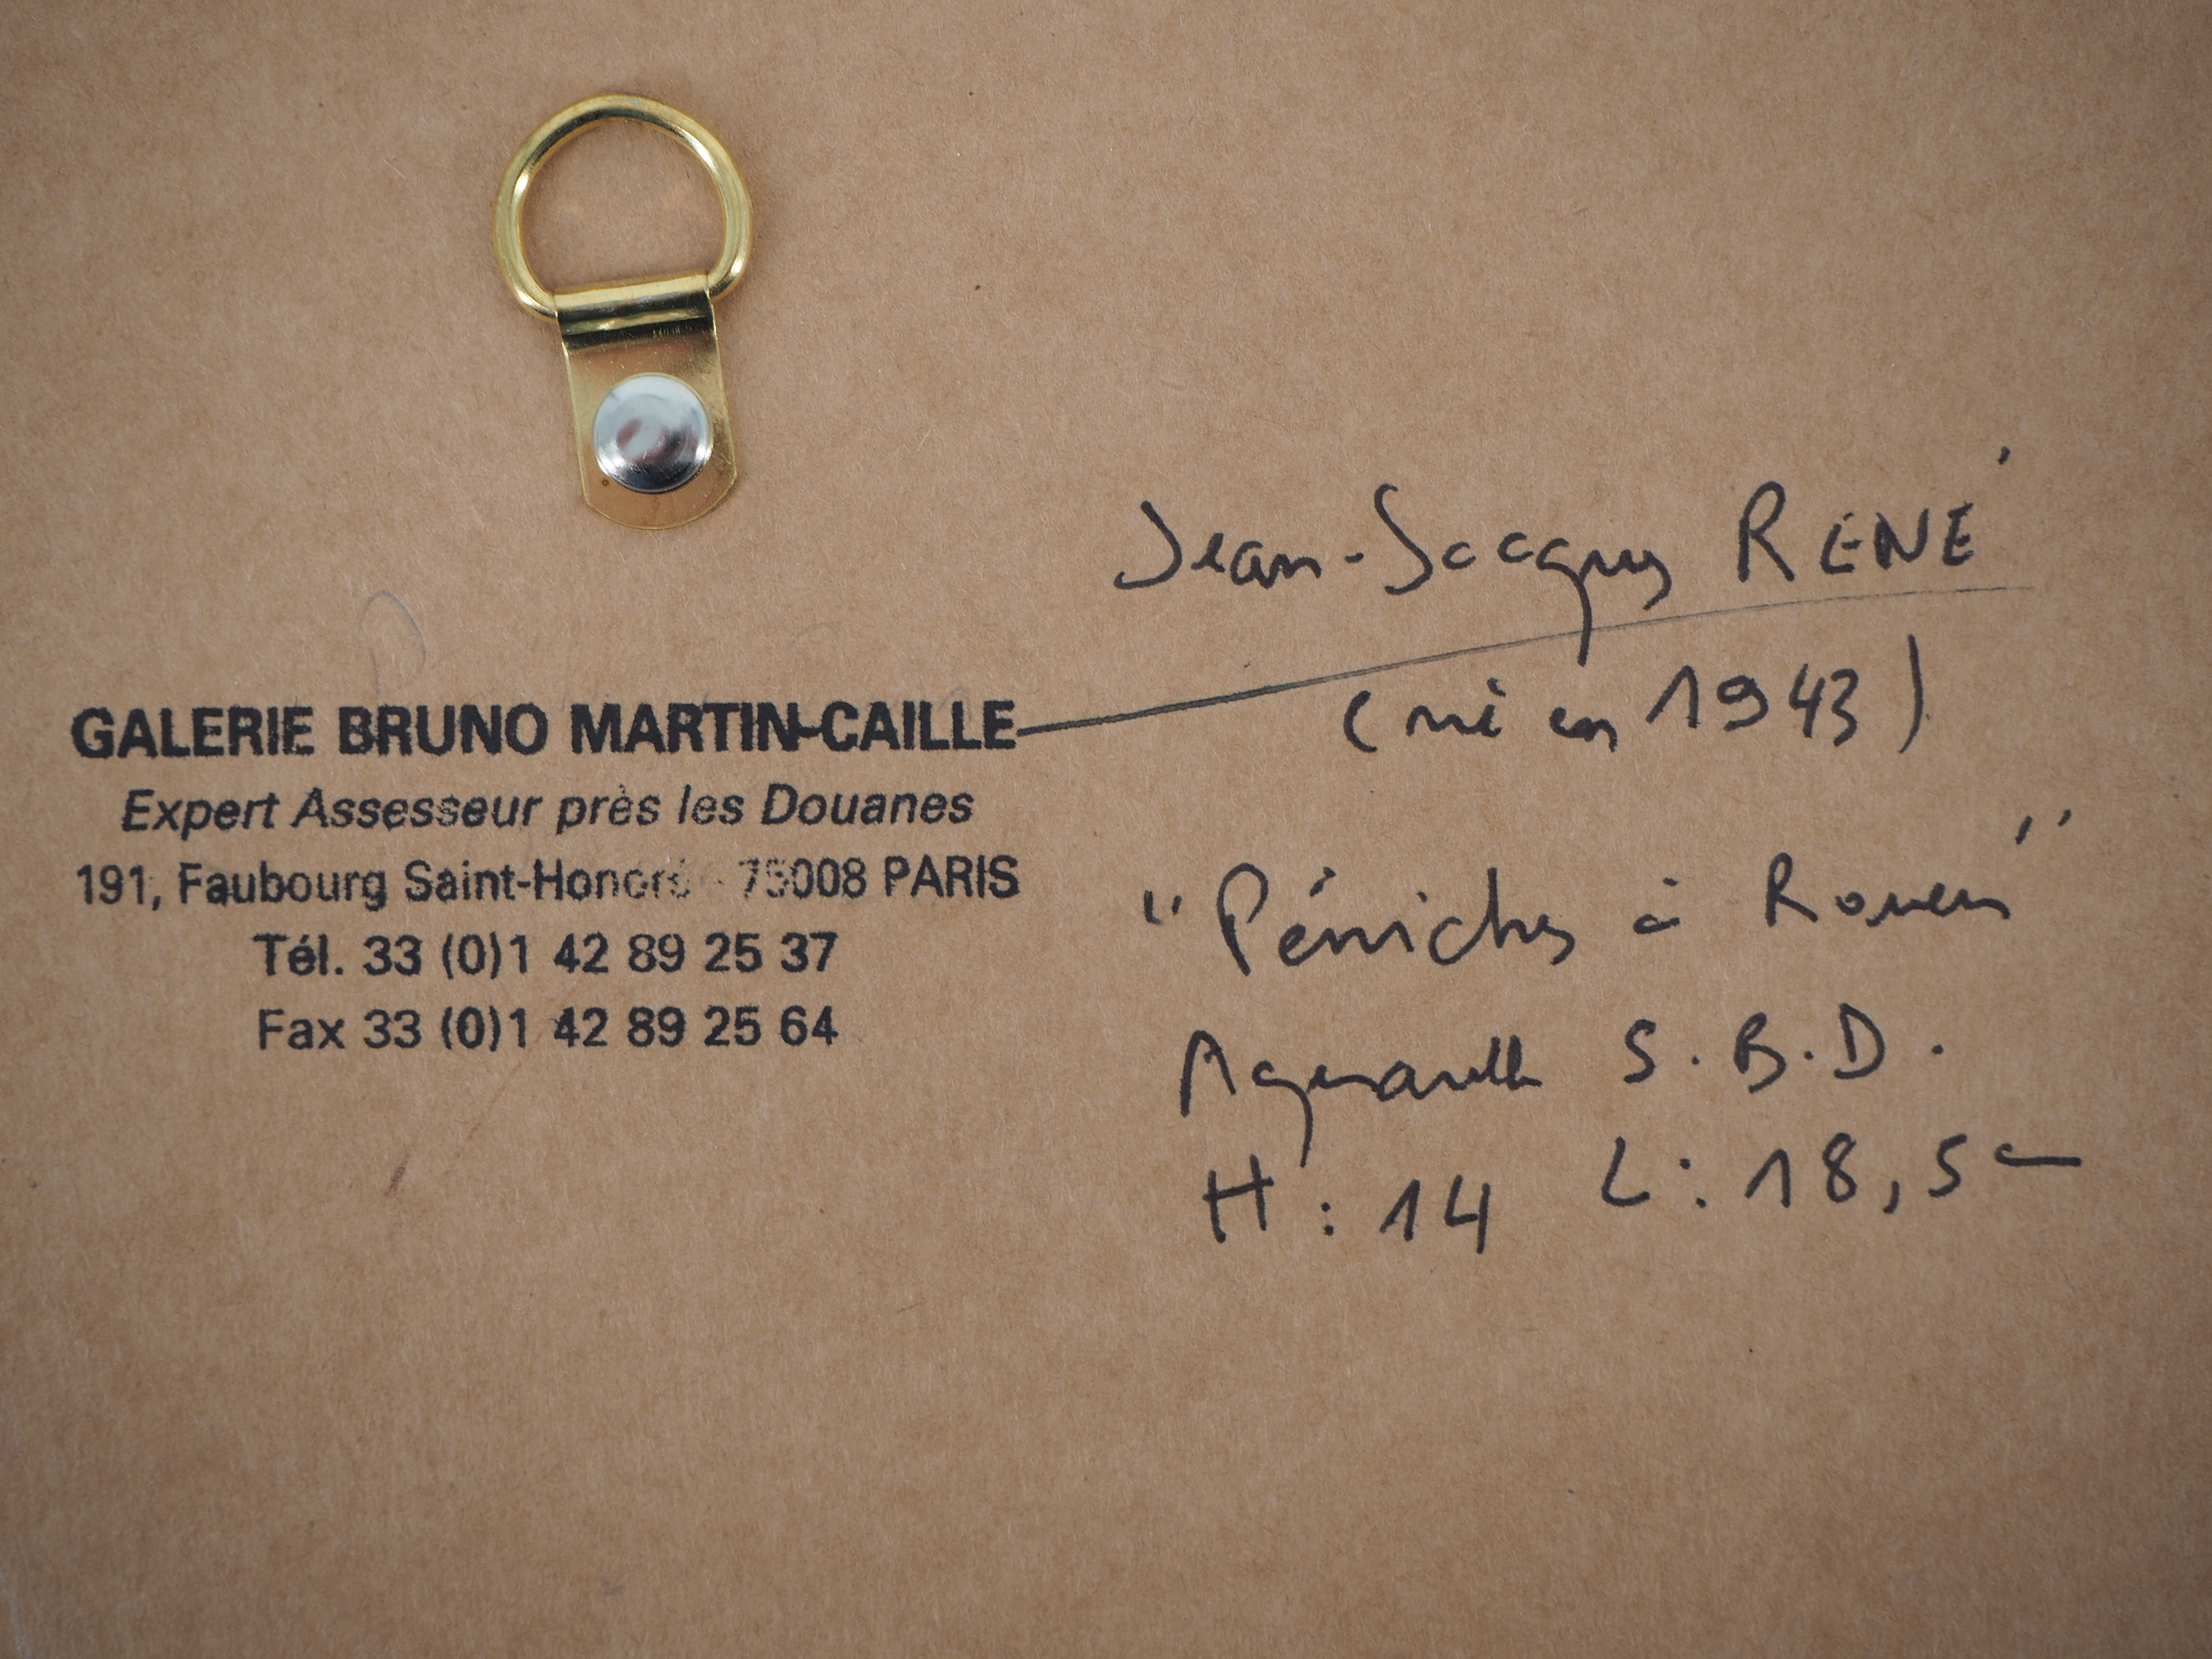 GALERIE BRUNO MARTIN-CAILLE
Expert Assesseur près les Douanes
191, Faubourg Saint-Honoré - 75008 PARIS
Tél. 33 (0)1 42 89 25 37
Fax 33 (0)1 42 89 25 64
Jean-Jacques RENÉ
(né en 1943)
"Péniches à Rouen"
Aquarelle S.B.D.
H : 14 L : 18,5 cm